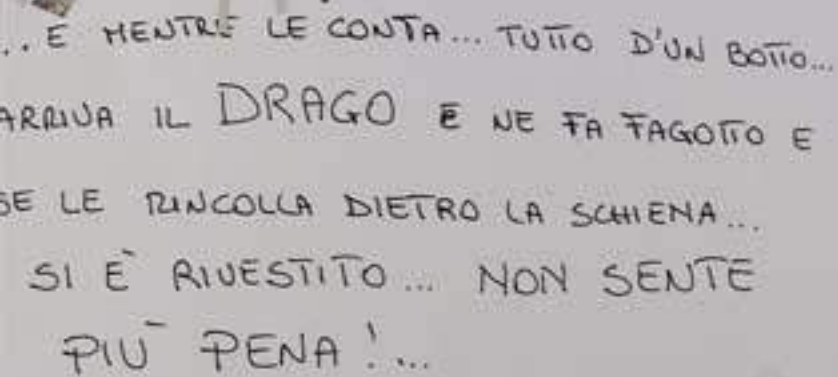 ... E MENTRE LE CONTA... TUTTO D'UN BOTTO...
ARRIVA IL DRAGO E NE FA FAGOTTO E
SE LE RINCOLLA DIETRO LA SCHIENA...
SI È RIVESTITO... NON SENTE
PIÙ PENA!...